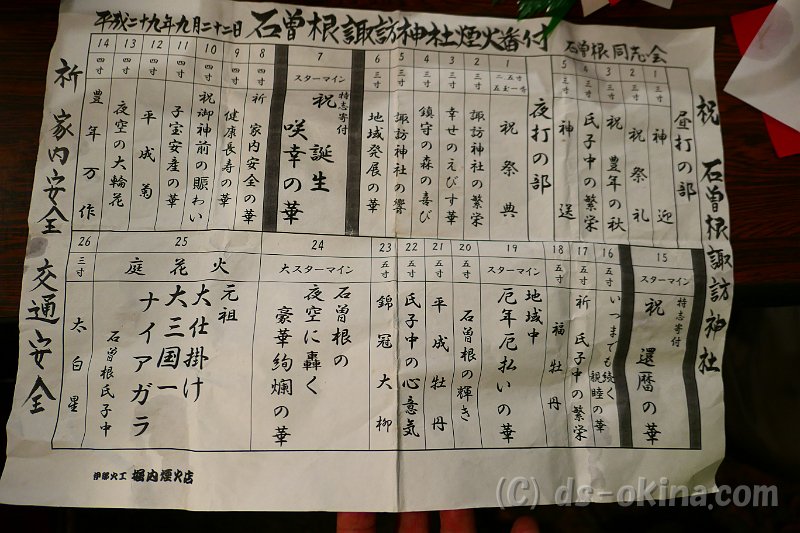 平成二十九年九月二十二日 石曽根諏訪神社煙火番付 石曽根同志会
祝 石曽根諏訪神社
昼打の部
1 三寸 神迎
2 三寸 祝祭礼
3 三寸 祝 豊年の秋
4 三寸 氏子中の繁栄
5 三寸 神送
夜打の部
1 二、五寸 五玉一寸 祝祭典
2 三寸 諏訪神社の繁栄
3 三寸 幸せのえびす華
4 三寸 鎮守の森の喜び
5 三寸 諏訪神社の響
6 三寸 地域発展の華
7 スターマイン 特志寄付
祝 誕生
咲幸の華
8 四寸 祈 家内安全の華
9 四寸 健康長寿の華
10 四寸 祝御神前の賑わい
11 四寸 子宝安産の華
12 四寸 平成菊
13 四寸 夜空の大輪花
14 四寸 豊年万作
15 スターマイン 特志寄付
祝 還暦の華
16 五寸 いつまでも続く
親睦の華
17 五寸 祈 氏子中の繁栄
18 五寸 福牡丹
19 スターマイン 地域中
厄年厄払いの華
20 五寸 石曽根の輝き
21 五寸 平成牡丹
22 五寸 氏子中の心意気
23 五寸 錦冠大柳
24 大スターマイン
石曽根の
夜空に轟く
豪華絢爛の華
25 庭花火
元祖
大仕掛け
大三国一
ナイアガラ
石曽根氏子中
26 三寸 太白星
祈 家内安全 交通安全
伊那火工 堀内煙火店
(C) ds-okina.com